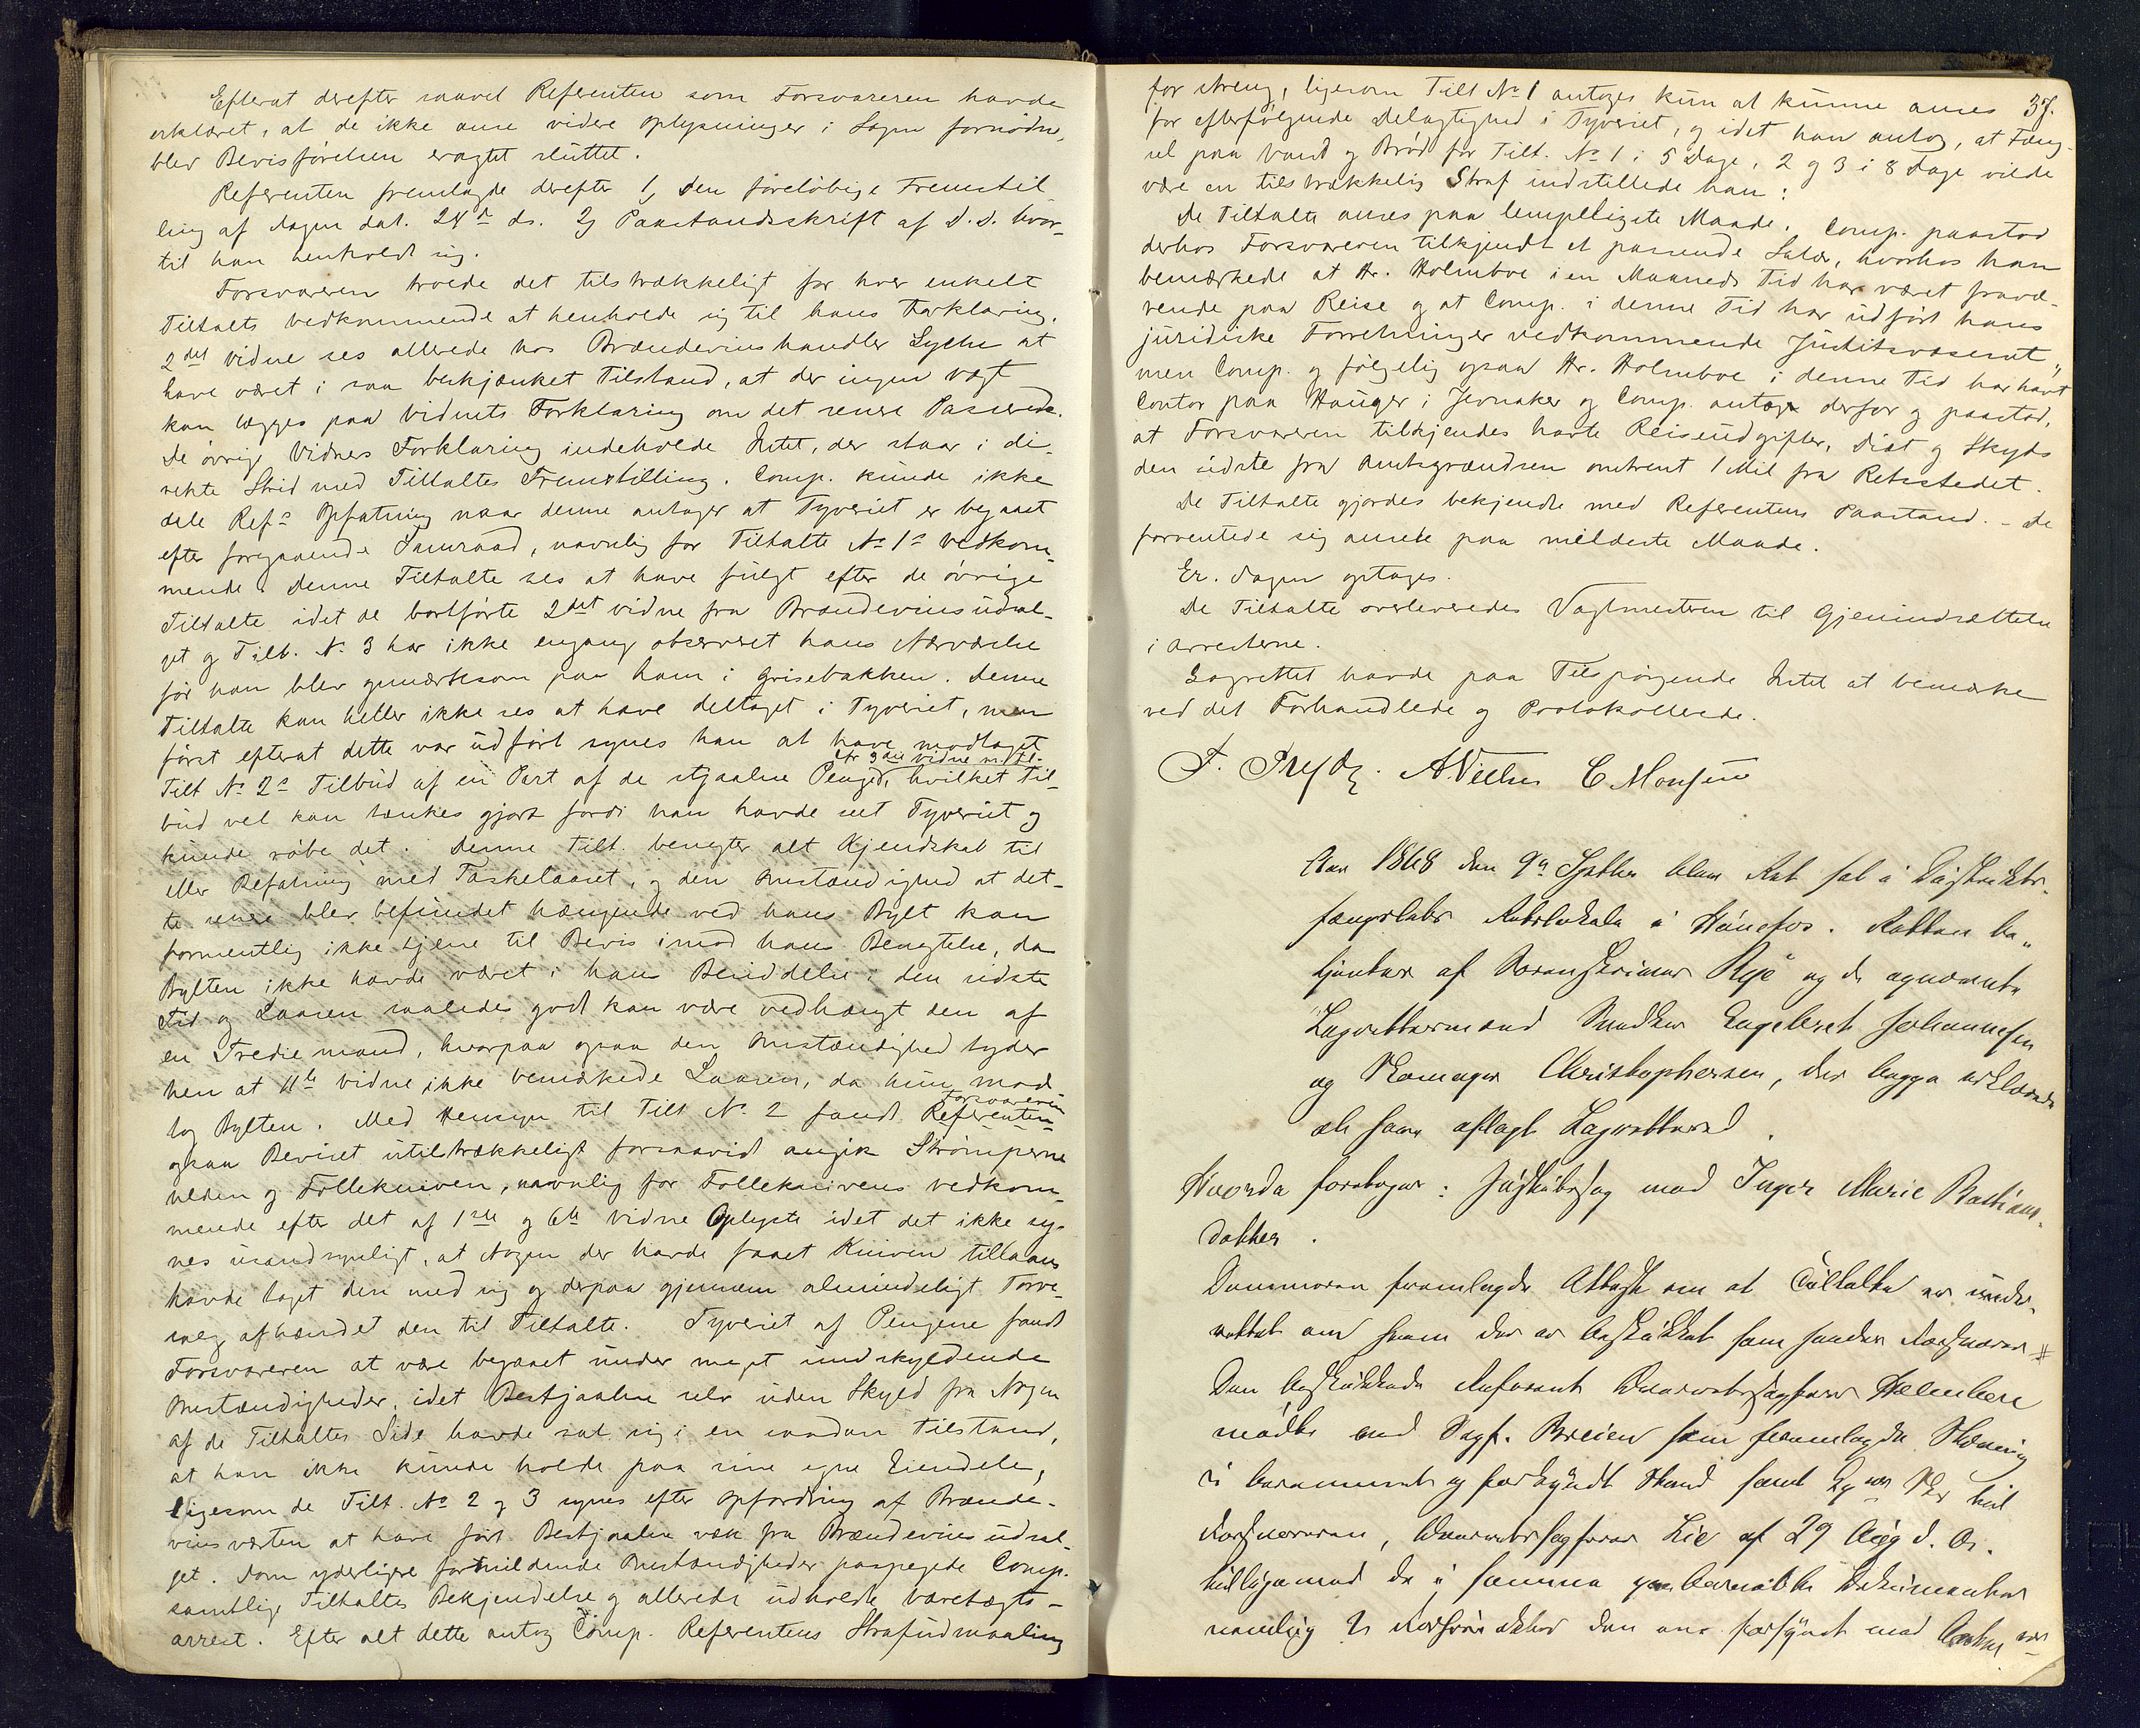 Efterat derefter saavel Referenten som Forsvareren havde
erklæret, at de ikke anse videre Oplysninger i Sagen fornødne,
blev Bevisførelsen eragtet sluttet.
Referenten fremlagde derefter 1, den foreløbige Fremstil
ling af Sagen dat. 24de ds. 2, Paastandsskrift af D. D. hvor-
til han henholdt sig.
Forsvareren troede det tilstrækkeligt for hver enkelt
Tiltalts Vedkommende at henholde sig til hans Forklaring.
2det Vidne ses allerede hos Brændevinshandler Lyche at
have været i saa beskjænket Tilstand, at der ingen Vægt
kan lægges paa Vidnets Forklaring om det senere Passerede.
De øvrige Vidners Forklaring indeholde Intet, der staar i di-
rekte Strid med Tiltaltes Fremstilling. Comp. kunde ikke
dele Refs Opfatning naar denne antager at Tyveriet er begaaet
efter foregaaende Samraad, navnlig for Tiltalte No 1s Vedkom-
mende. Denne Tiltalte ses at have fulgt efter de øvrige
Tiltalte idet de bortførte 2det Vidne fra Brændevinsudsal-
get og Tilt. No 3 har ikke engang observeret hans Nærværelse
før han blev opmærksom paa ham i Grisebakken. Denne
Tiltalte kan heller ikke ses at have deltaget i Tyveriet, men
først efterat dette var udført synes han at have modtaget
Tilt No 2s Tilbud af en Part af de stjaalne Penge, hvilket Til-
bud vel kan tænkes gjort fordi han havde seet Tyveriet og
kunde røbe det. Denne Tilt. benegter alt Kjendskab til
eller Befatning med Taskelaaset, og den Omstændighed at det-
te senere blev befundet hængende ved hans Bylt kan
formentlig ikke tjene til Bevis imod hans Benegtelse, da
Bylten ikke havde været i hans Besiddelse i den sidste
Tid og Laasen saaledes godt kan være vedhængt den af
en Trediemand, hvorpaa ogsaa den Omstændighed tyder
hen at 11te Vidne ikke bemærkede Laasen, da hun mod
tog Bylten. Med Hensyn til Tilt No 2 fandt Forsvareren Referenten
ogsaa Beviset utilstrækkeligt forsaavidt angik Strømperne
Ulden og Follekniven, navnlig for Folleknivens Vedkom-
mende efter det af 1ste og 6te Vidne Oplyste idet det ikke sy-
nes usandsynligt, at Nogen der havde faaet Kniven tillaans
havde taget den med sig og derpaa gjennem almindeligt Torve-
salg afhændet den til Tiltalte. Tyveriet af Pengene fandt
Forsvareren at være begaaet under meget undskyldende
Omstændigheder, idet Bestjaalne selv uden Skyld fra Nogen
af de Tiltaltes Side havde sat sig i en saadan Tilstand,
at han ikke kunde holde paa sine egne Eiendele,
ligesom de Tilt. No 2 og 3 synes efter Opfordring af Brænde-
vinsværten at have ført Bestjaalne væk fra Brændevinsudsal-
get. Som yderligere formildende Omstændigheder paapegede Comp.
samtlige Tiltaltes Bekjendelse og allerede udholdte Varetægts-
arrest. Efter alt dette antog Comp. Referentens Strafudmaaling
37.
for streng, ligesom Tilt No 1 antoges kun at kunne anses
for efterfølgende Delagtighed i Tyveriet, og idet han antog, at Fæng-
sel paa Vand og Brød for Tilt. No 1 i 5 Dage, 2 og 3 i 8 Dage vilde
være en tilstrækkelig Straf indstillede han:
De Tiltalte anses paa lempeligste Maade. Comp. paastod
derhos Forsvareren tilkjendt et passende Salær, hvorhos han
bemærkede at Hr. Holmboe i en Maaneds Tid har været fravæ-
rende paa Reise og at Comp. i denne Tid har udført hans
juridiske Forretninger vedkommende Justitsvæsenet,
men Comp. og følgelig ogsaa Hr. Holmboe i denne Tid har havt
Contor paa Hauger i Jevnaker og Comp. antager derfor og paastod,
at Forsvareren tilkjendes havte Reiseudgifter, Diæt og Skyds
den sidste fra Amtsgrændsen omtrent 1 Mil fra Retsstedet.
De Tiltalte gjordes bekjendte med Referentens Paastand. - De
forventede sig ansete paa mildeste Maade.
Er. Sagen optages.
De Tiltalte overleveredes Vagtmesteren til Gjenindsættelse
i Arresterne.
Lagrettet havde paa Tilspørgende Intet at bemærke
ved det Forhandlede og Protokollerede.
A. Nielsen C Monsen
Aar 1868 den 9de Septbr blev Ret sat i Distrikts-
fængslets Retslokale i Hønefos. Retten be-
tjentes af Sorenskriver Rye og de opnævnte
Lagrettesmænd Snedker Engebret Johannesen
og Skomager Christophersen, der begge erklærede
at have aflagt Lagrettesed.
Hvorda foretoges: Justitssag mod Inger Marie Bastians-
datter.
Dommeren fremlagde Attest om at Tiltalte er under-
rettet om hvem der er beskikket som hendes Forsvarer
Den beskikkede Referent Overretssagfører Holmboe
mødte ved Sagf. Breien som fremlagde Stævning
i berammet og forkyndt Stand samt
Forsvareren, Overretssagfører Lie af 29 Aug d. A.
tilligemed de i samme paaberaabte Dokumenter
nemlig 2 Forhørsakter den ene forsynet med